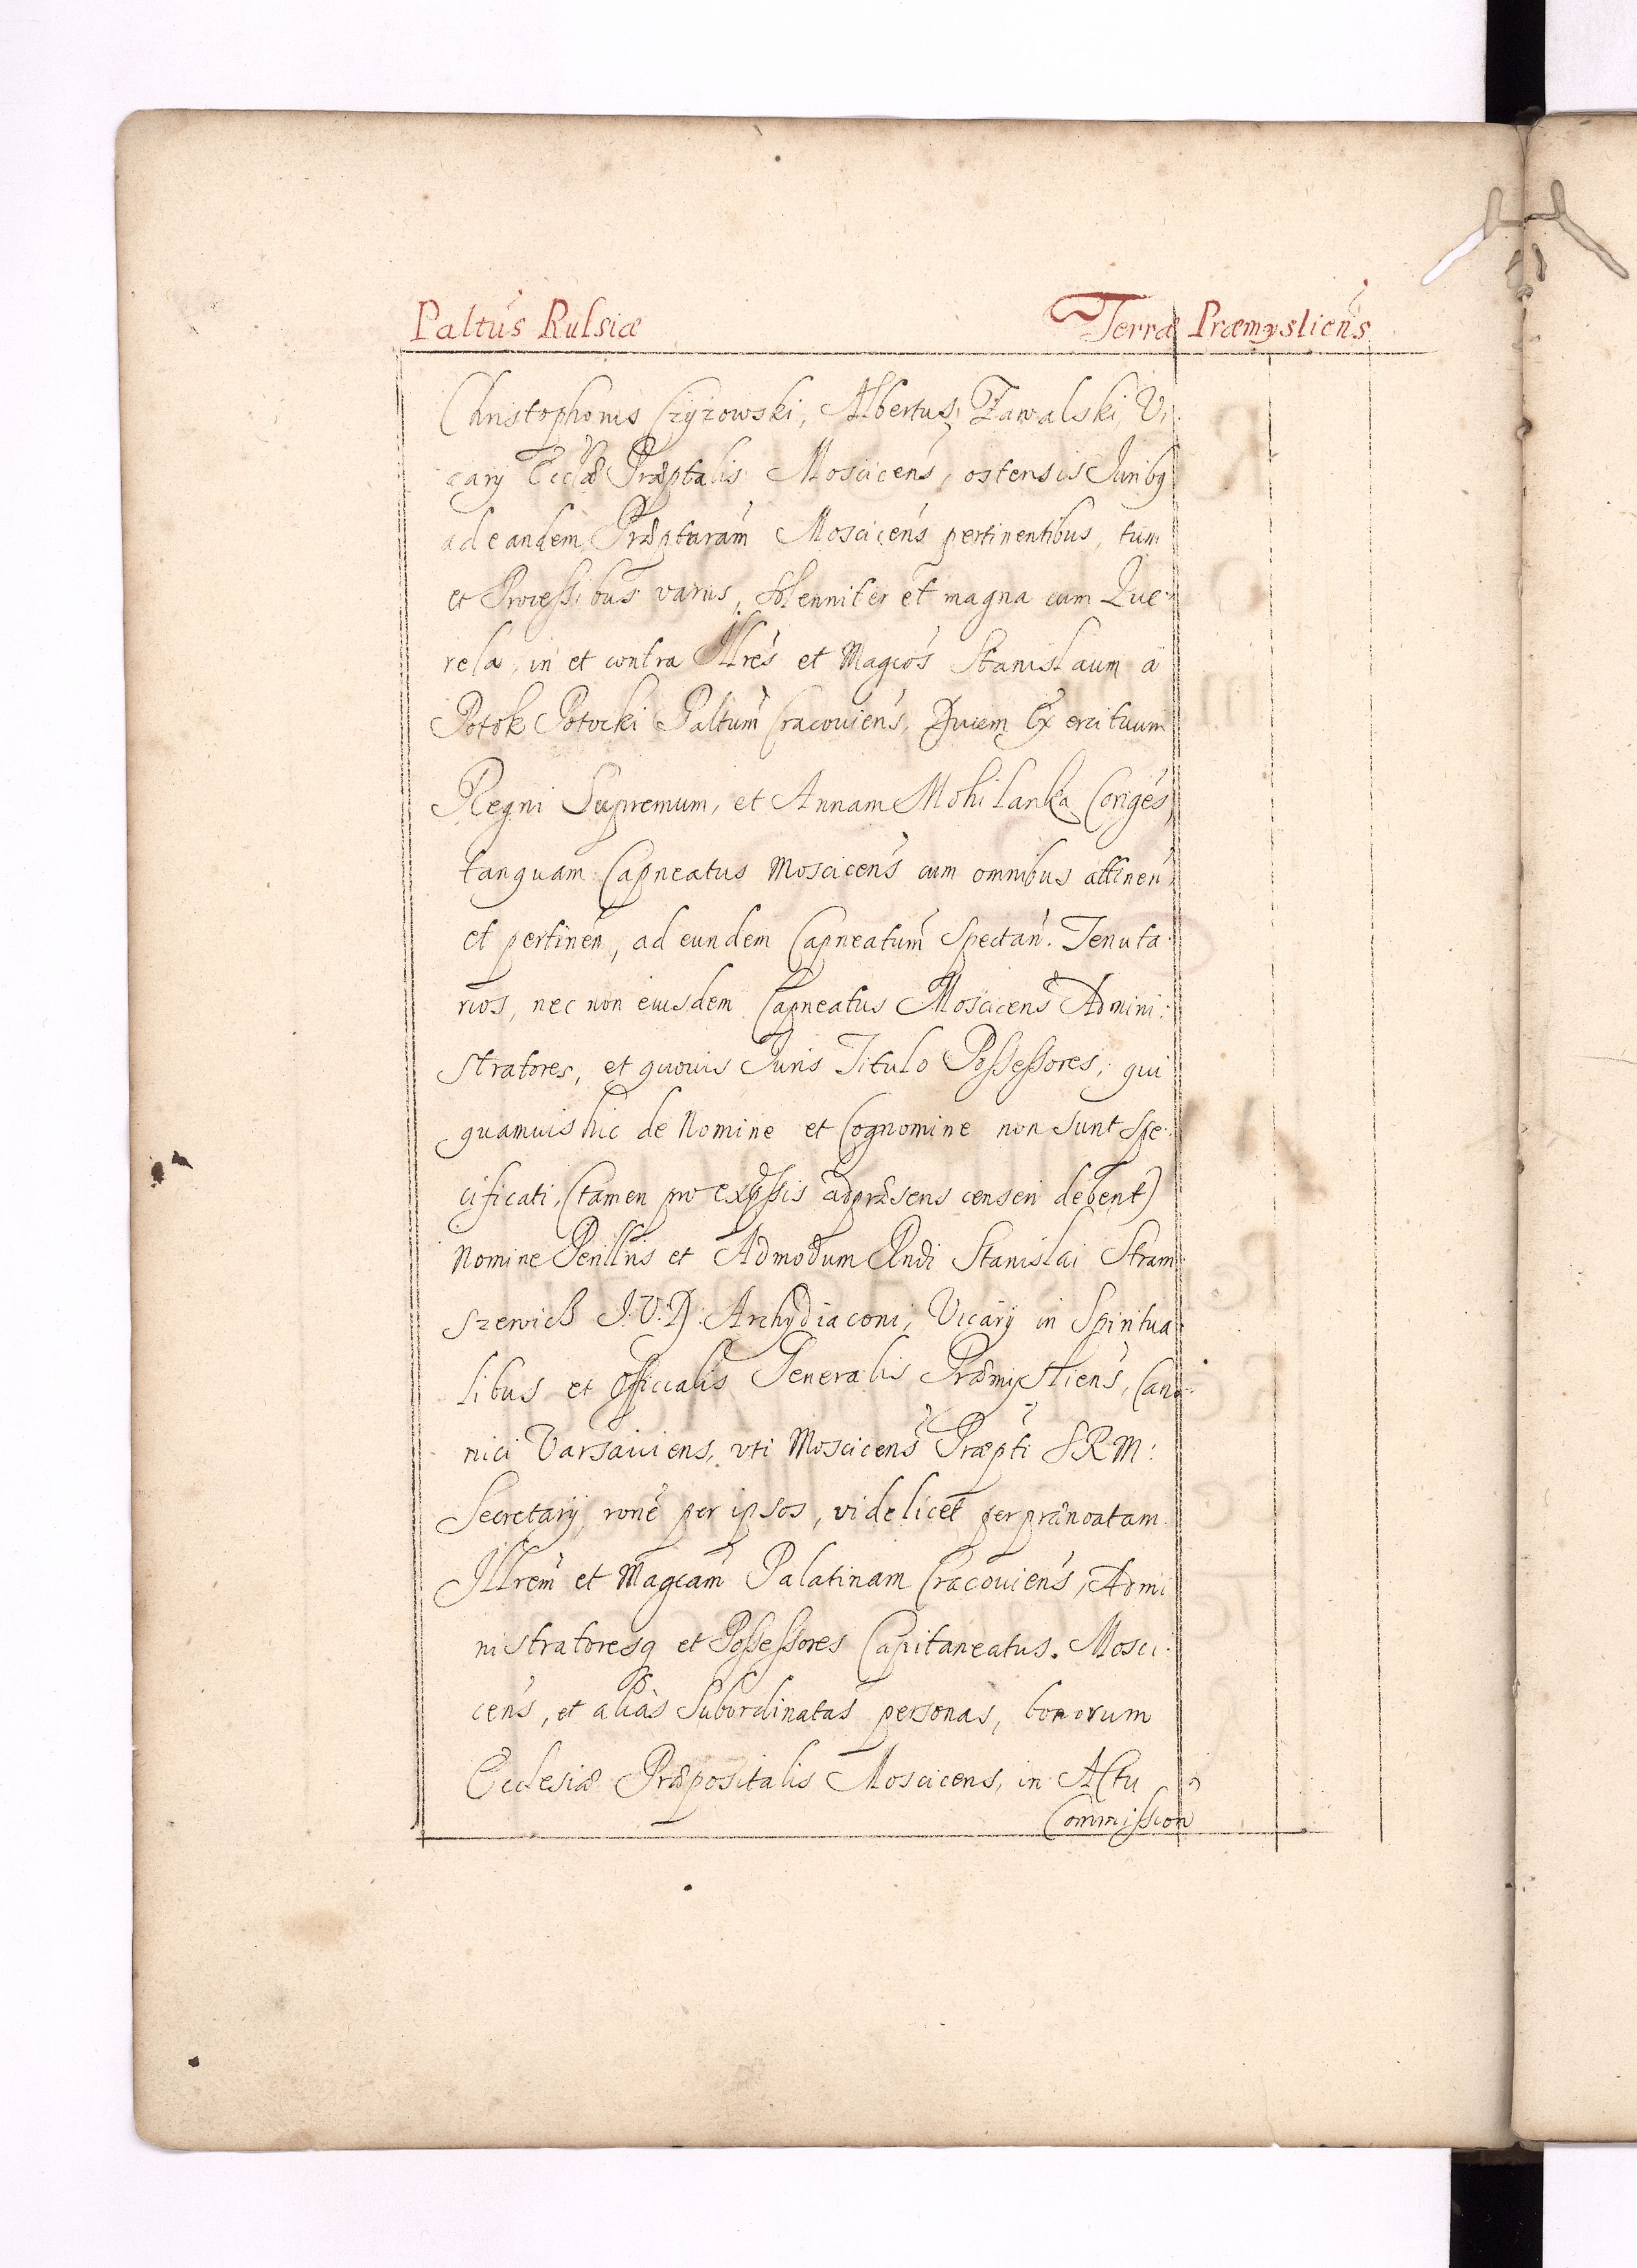 Paltus Russiæ Terræ Præmysliens
Christophorus Czyżowski, Albertus Zawalski, Vi
carij Eccłæ Præptalis Moscicens, ostensis Juribq
ad eandem Præpturam Moscicens pertinentibus, tum
et Processibus varijs, solenniter et magna cum Que
rela, in et contra Illres et Magcos Stanislaum à
Potok Potocki Paltum Cracouiens, Ducem Exercituum
Regni Supremum, et Annam Mohilanka Coniges,
tanquam Capneatus Moscicens cum omnibus attinen
et pertinen, ad eundem Capneatum spectan. Tenuta
rios, nec non eiusdem Capneatus Moscicens Admini:
stratores, et quouis Juris Titulo Possessores, qui
quamuis hic de Nomine et Cognomine non sunt spe:
cificati, (tamen pro expssis ad præsens censeri debent)
Nomine Perillris et Admodum Rndi Stanislai Stram
szewich J.V.D. Archydiaconi, Vicarij in Spiritua
libus et Officialis Generalis Præmysliens, Cano
nici Varsauiens, vti Moscicens Præpti S R M:
Secretarij, rone per ipsos, videlicet per prænoatam
Illrem et Magcam Palatinam Cracouiens, Admi
nistratoresq et Possessores Capitaneatus Mosci:
cens, et alias Subordinatas personas, bonorum
Ecclesiæ Præpositalis Moscicens, in Actu
Commission